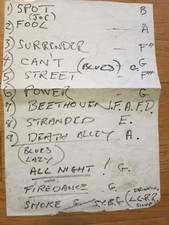 1) SPOT B
(JOE)
2) FOOL - A
3) SURRENDER - F#
4) CAN'T (BLUES) - G.
5) STREET - F#
6) POWER - G
7) BEETHOVEN - F.A.F.D.
8) STRANDED E.
9) DEATH ALLEY A.
(BLUES
LAZY)
ALL NIGHT! G.
FIREDANCE - G.
SMOKE G